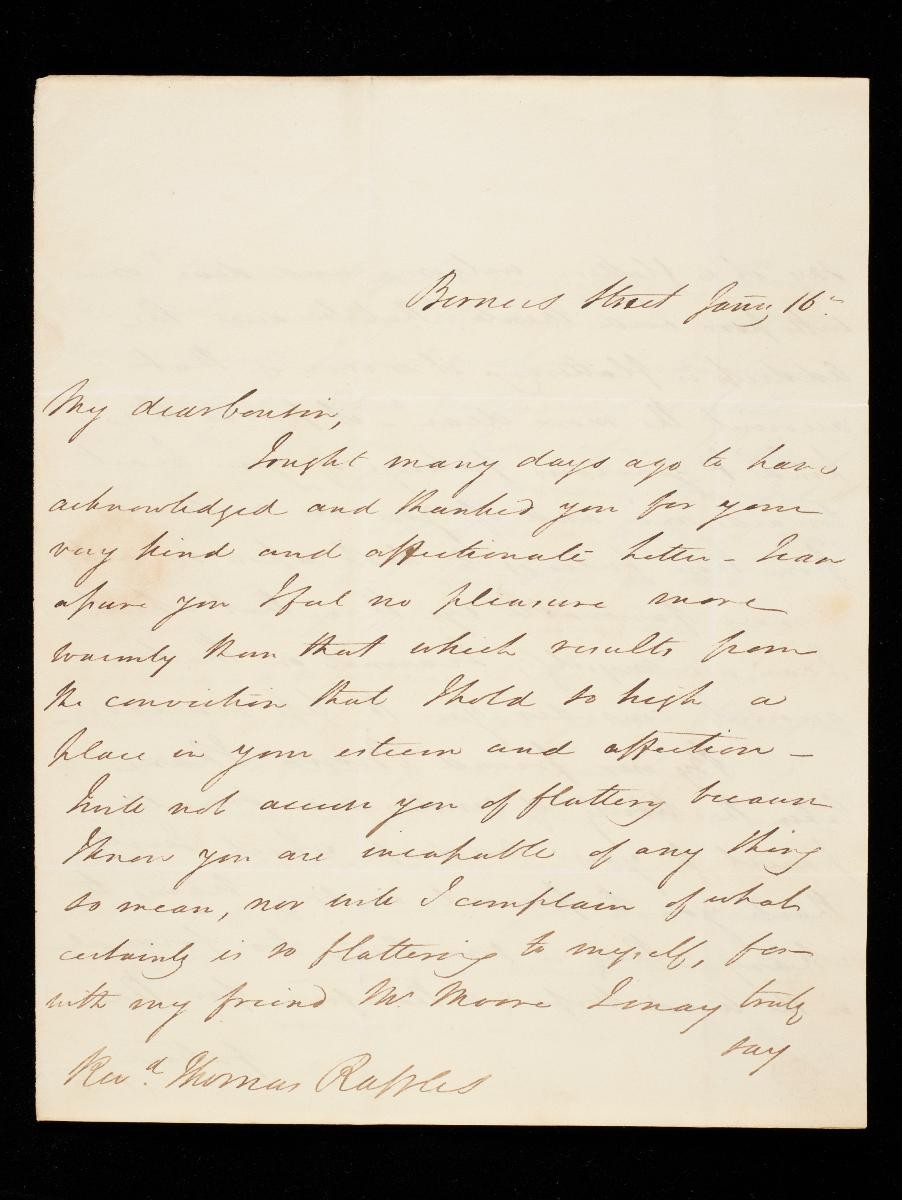 Berners Street Jany 16th
My dear Cousin,
I ought many days ago to have
acknowledged and thanked you for your
very kind and affectionate letter - I can
assure you I feel no pleasure more
warmly than that which results from
the conviction that I hold so high a
place in your esteem and affection -
I will not accuse you of flattery because
I know you are incapable of any thing
so mean, nor will I complain of what
certainly is so flattering to myself, for
with my friend Mr Moore I may truly
say
Revd. Thomas Raffles